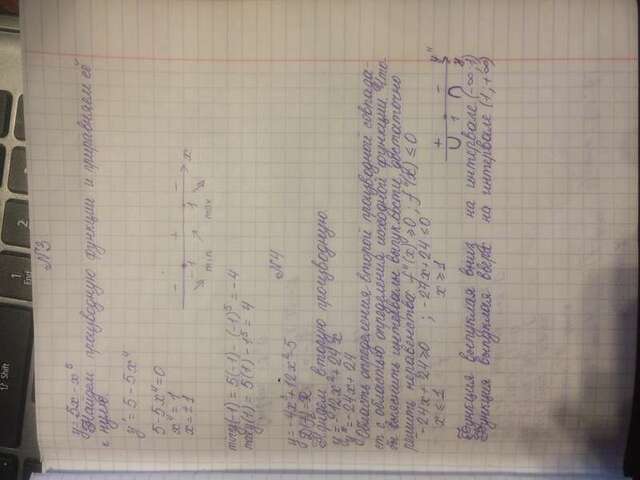 №3
y = 5x - x⁵
Найдем производную функции и приравняем её
к нулю.
y' = 5 - 5x⁴
5 - 5x⁴ = 0
x⁴ = 1
x = ±1
- + -
-1 1 x
min max
min y(-1) = 5(-1) - (-1)⁵ = -4
max y(1) = 5(1) - 1⁵ = 4
№4
y = -4x³ + 12x² - 5
D(f) = R
Найдем вторую производную
y' = -12x² + 24x
y'' = -24x + 24
Область определения второй производной совпада-
ет с областью определения исходной функции. Что-
бы выяснить интервалы выпуклости, достаточно
решить неравенства f''(x) ≥ 0 ; f''(x) ≤ 0
-24x + 24 ≥ 0 ; -24x + 24 ≤ 0
x ≤ 1 x ≥ 1
+ - y''
1 x
Функция выпуклая вниз на интервале (-∞; 1)
Функция выпуклая вверх на интервале (1; +∞)